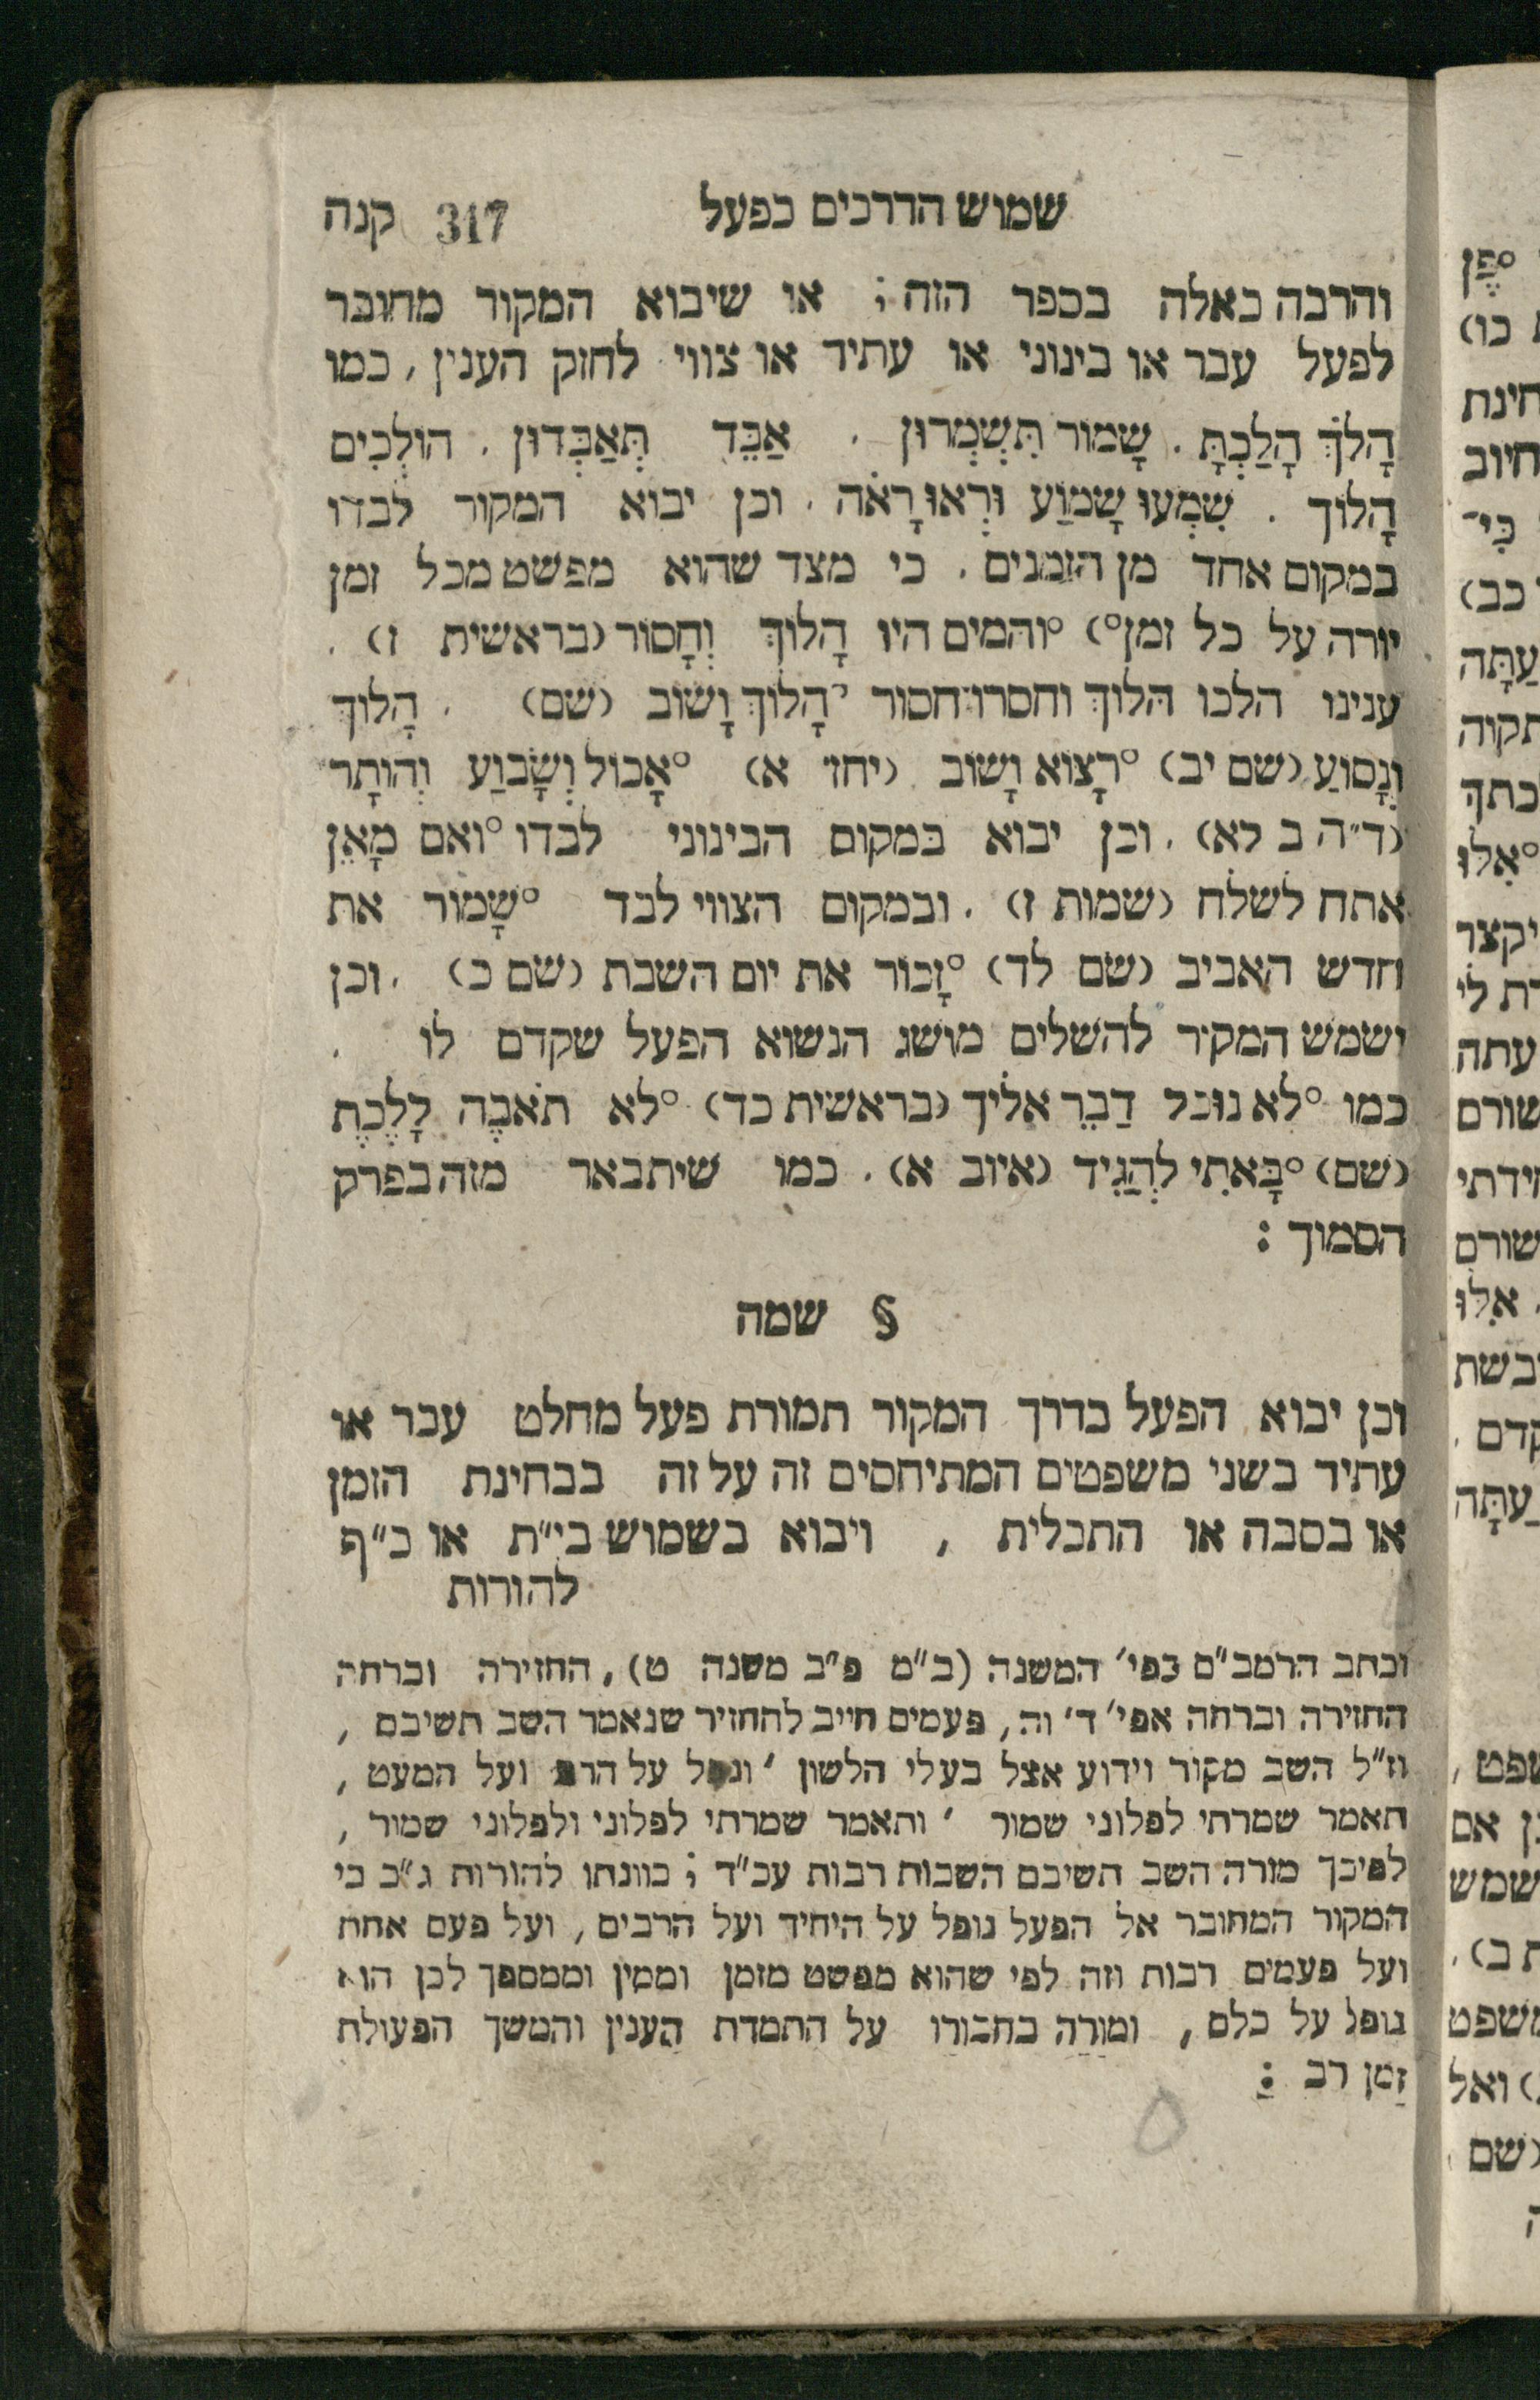 שמוש הדרכים בפעל 317 קנה
והרבה כאלה בספר הזה; או שיבוא המקור מחובר
לפעל עבר או בינוני או עתיד או צווי לחזק הענין, כמו
הָלֹךְ הָלַכְתָּ. שָׁמוֹר תִּשְׁמְרוּן. אַבֵּד תְּאַבְּדוּן. הוֹלְכִים
הָלוֹךְ. שִׁמְעוּ שָׁמוֹעַ וּרְאוּ רָאֹה. וכן יבוא המקור לבדו
במקום אחד מן הזמנים. כי מצד שהוא מפשט מכל זמן
יורה על כל זמן°) °והמים היו הָלוֹךְ וְחָסוֹר (בראשית ז).
ענינו הלכו הלוך וחסרו חסור °הָלוֹךְ וָשׁוֹב (שם). הָלוֹךְ
וְנָסוֹעַ (שם יב) °רָצוֹא וָשׁוֹב (יחז׳ א) °אָכוֹל וְשָׂבוֹעַ וְהוֹתָר
(ד״ה ב לא). וכן יבוא במקום הבינוני לבדו °ואם מָאֵן
אתה לשלח (שמות ז). ובמקום הצווי לבד °שָׁמוֹר את
חדש האביב (שם לד) °זָכוֹר את יום השבת (שם כ). וכן
ישמש המקור להשלים מושג הנשוא הפעל שקדם לו.
כמו °לא נוּכל דַבֵּר אליך (בראשית כד) °לא תֹאבֶה לָלֶכֶת
(שם) °בָּאתִי לְהַגִּיד (איוב א). כמו שיתבאר מזה בפרק
הסמוך:
§ שמה
וכן יבוא הפעל בדרך המקור תמורת פעל מחלט עבר או
עתיד בשני משפטים המתיחסים זה על זה בבחינת הזמן
או בסבה או התכלית, ויבוא בשמוש בי״ת או כ״ף
להורות
וכתב הרמב״ם בפי׳ המשנה (ב״מ פ״ב משנה ט), החזירה וברחה
החזירה וברחה אפי׳ ד׳ וה, פעמים חייב להחזיר שנאמר השב תשיבם,
וז״ל השב מקור וידוע אצל בעלי הלשון׳ ונופל על הרב ועל המעט,
תאמר שמרתי לפלוני שמור׳ ותאמר שמרתי לפלוני ולפלוני שמור,
לפיכך מורה השב תשיבם השבות רבות עכ״ד; כוונתו להורות ג״כ כי
המקור המחובר אל הפעל נופל על היחיד ועל הרבים, ועל פעם אחת
ועל פעמים רבות וזה לפי שהוא מפשט מזמן וממין וממספר לכן הוא
נופל על כלם, ומורה בחבורו על התמדת הענין והמשך הפעולת
זמן רב: